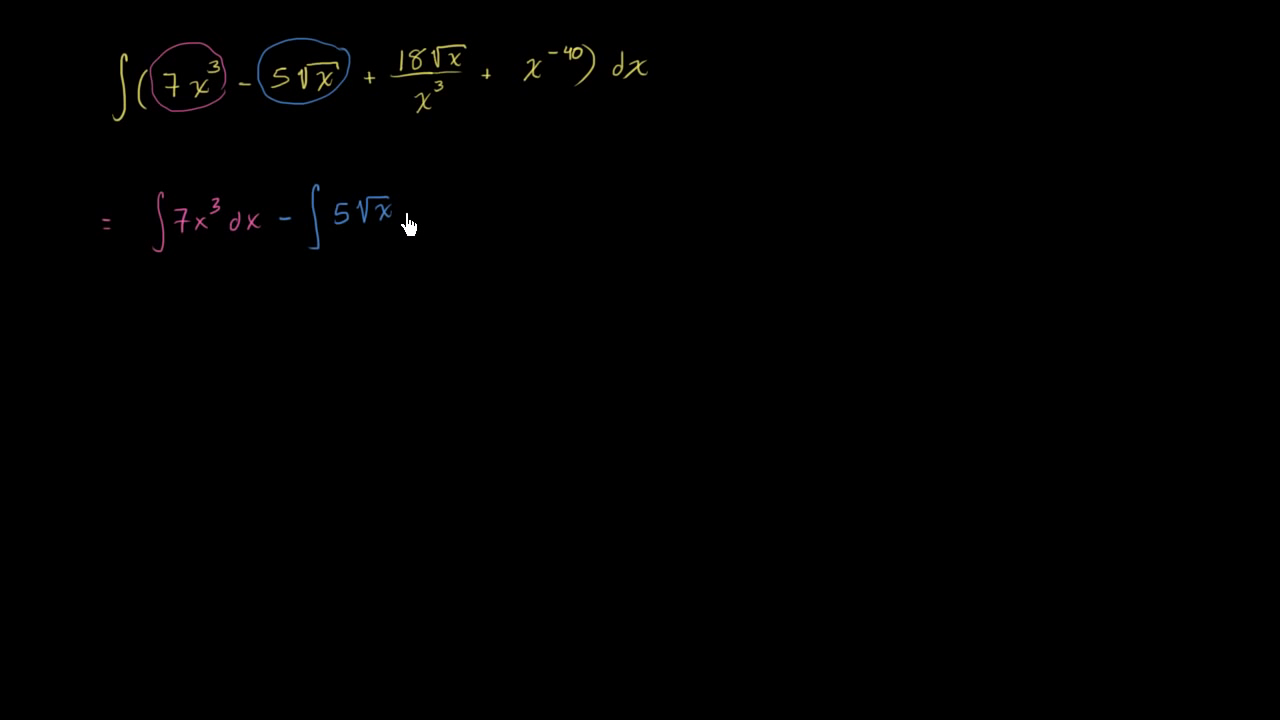 ∫(7x³ - 5√x + 18√x/x³ + x⁻⁴⁰) dx
= ∫7x³ dx - ∫5√x